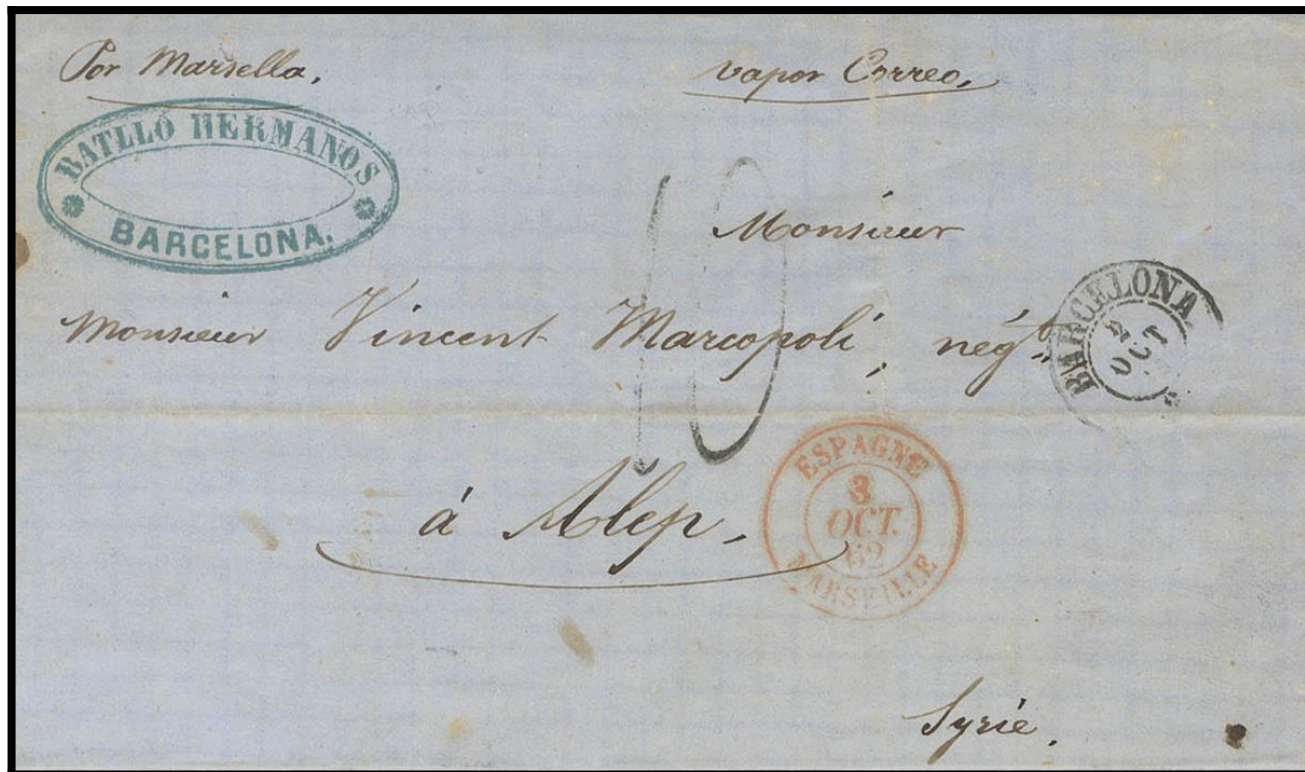 Por Marsella, vapor Correo,
BATLLÓ HERMANOS
BARCELONA.
10
Monsieur
Monsieur Vincent Marcopoli, négt.
BARCELONA
2
OCT
à Alep.
ESPAGNE
3
OCT.
62
MARSEILLE
Syrie.